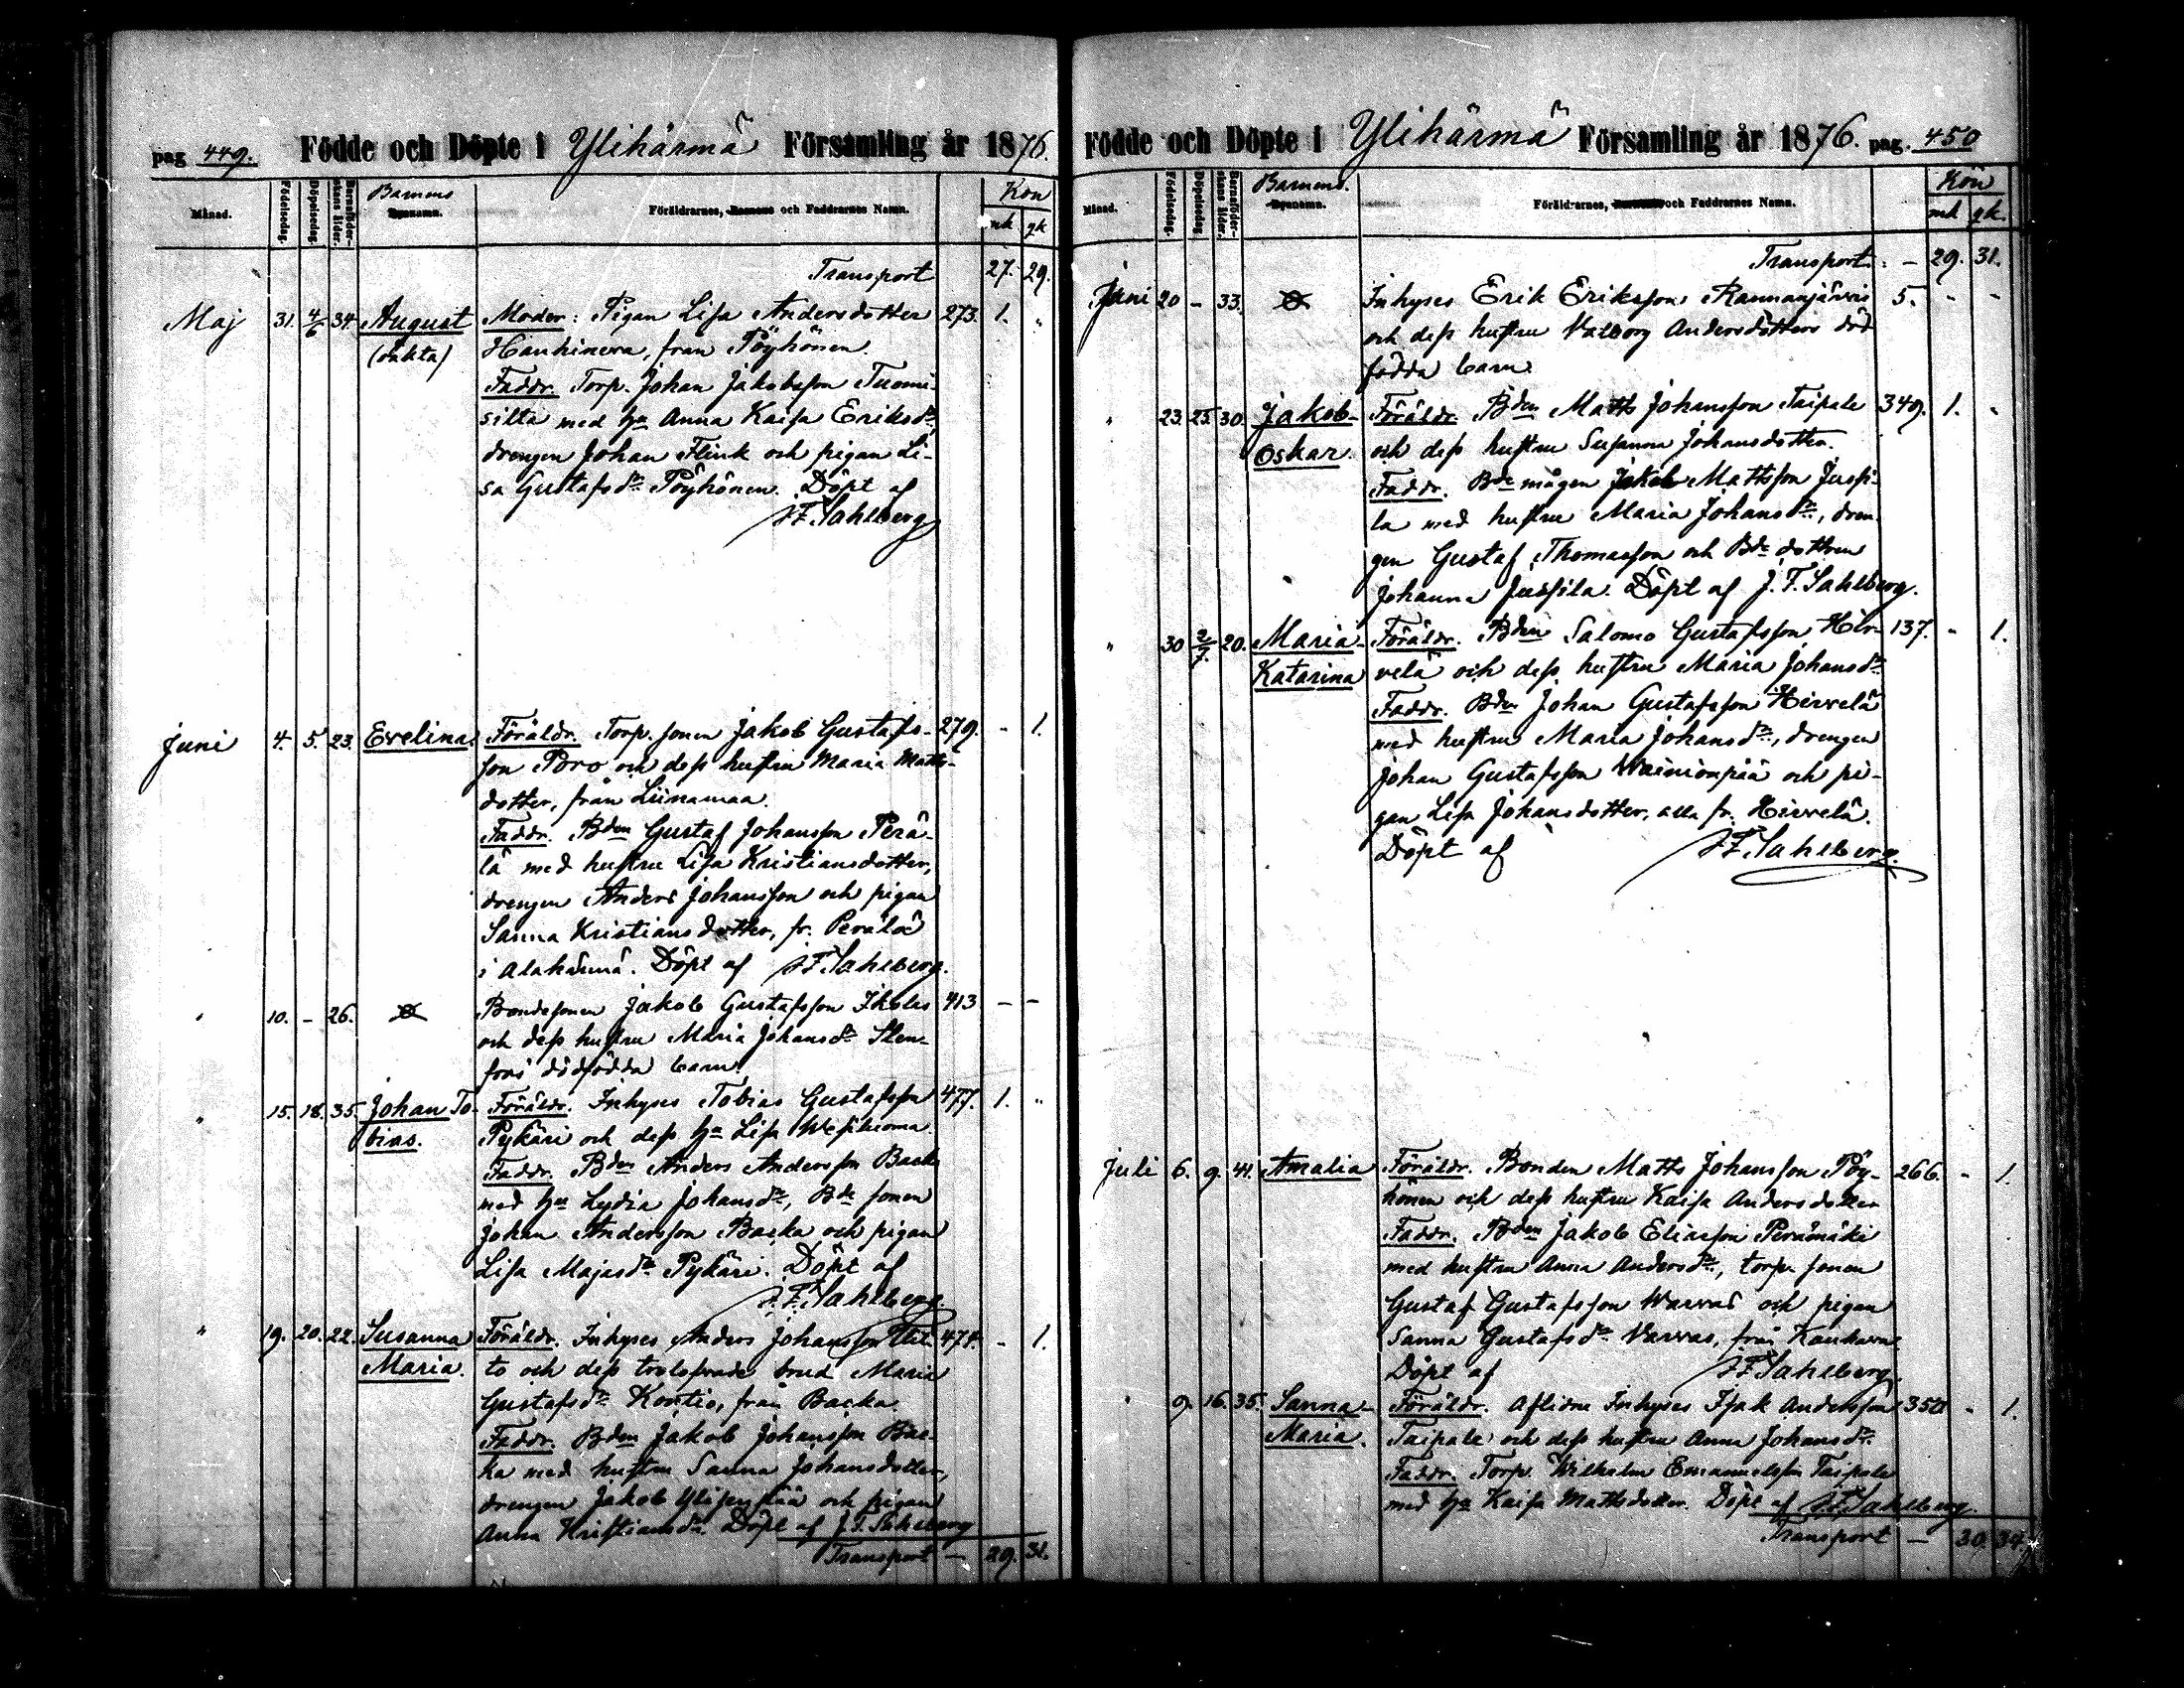 pag 449. Födde och Döpte i Ylihärmä Församling år 1876.
Månad. Födelsedag. Döpelsedag. Barnaföderskans ålder. Barnens Dopnamn. Föräldrarnes, Barnens och Faddrarnes Namn. Kön
mk qk
Transport 27. 29.
Maj 31. 4/6 34. August Moder: Pigan Lisa Andersdotter 273. 1. "
(oäkta) Hanhineva, från Pöyhönen.
Faddr. Torp. Johan Jakobsson Tuomi-
silta med ha Anna Kaisa Eriksdr
drengen Johan Flink och pigan Li-
sa Gustafsdr Pöyhönen. Döpt af
J.F. Sahlberg
Juni 4. 5. 23. Evelina. Föräldr. Torp. sonen Jakob Gustafs- 279. - 1.
son Poro och dess hustru Maria Matts-
dotter, från Liinamaa.
Faddr. Bden Gustaf Johansson Perä-
lä med hustru Lisa Kristiansdotter,
drengen Anders Johansson och pigan
Sanna Kristiansdotter, fr. Perälä
i Alahärmä. Döpt af J.F. Sahlberg.
" 10. - 26. Bondesonen Jakob Gustafsson Ikola 413 - -
och dess hustru Maria Johansdr Sten-
fors dödfödda barn.
" 15. 18. 35. Johan To- Föräldr. Inhyses Tobias Gustafsson 477. 1. "
bias. Pykäri och dess ha Lisa
Faddr. Bden Anders Andersson Backa
med ha Lydia Johansdr, Bde sonen
Johan Andersson Backa och pigan
Lisa Majasdr Pykäri. Döpt af
J.F. Sahlberg
" 19. 20. 22. Susanna Föräldr. Inhyses Anders Johansson 474. - 1.
Maria. to och dess trolofvade brud Maria
Gustafsdr Kontio, från Backa.
Faddr. Bden Jakob Johansson Bac-
ka med hustru Sanna Johansdotter,
drengen Jakob och pigan
Anna Kristiansdr. Döpt af J.F. Sahlberg
Transport - 29. 31.
Födde och Döpte i Ylihärmä Församling år 1876. pag. 450
Månad. Födelsedag. Döpelsedag. Barnaföderskans ålder. Barnens. Dopnamn. Föräldrarnes, Barnens och Faddrarnes Namn. Kön
mk qk.
Transport. - 29. 31.
Juni 20 - 33. Inhyses Erik Eriksson Rannanjärvis 5. - -
och dess hustru Valborg Andersdotters död
födda barn.
" 23. 25. 30. Jakob- Föräldr. Bden Matts Johansson Taipale 349. 1. "
Oskar. och dess hustru Susanna Johansdotter.
Faddr. Bde mågen Jakob Mattsson Jussi-
la med hustru Maria Johansdr, dren-
gen Gustaf Thomasson och Bde dottren
Johanna Jussila. Döpt af J.F. Sahlberg.
" 30 2/7. 20. Maria- Föräldr. Bden Salomo Gustafsson Hir- 137. - 1.
Katarina velä och dess hustru Maria Johansdr
Faddr. Bden Johan Gustafsson Hirvelä
med hustru Maria Johansdr, drengen
Johan Gustafsson Wainionpää och pi-
gan Lisa Johansdotter, alla fr. Hirvelä.
Döpt af J.F. Sahlberg.
Juli 6. 9. 41. Amalia Föräldr. Bonden Matts Johansson Pöy- 266. - 1.
hönen och dess hustru Kaisa Andersdotter
Faddr. Bden Jakob Eliasson Perämäki
med hustru Anna Andersdr, torp. sonen
Gustaf Gustafsson Warvas och pigan
Sanna Gustafsdr Varvas, från Kauhava.
Döpt af J.F. Sahlberg.
" 9. 16. 35. Sanna- Föräldr. Aflidne Inhyses Isak Andersson 350 - 1.
Maria. Taipale och dess hustru Anna Johansdr.
Faddr. Torp. Wilhelm Emanuelsson Taipale
med ha Kaisa Mattsdotter. Döpt af J.F. Sahlberg.
Transport - 30. 34.